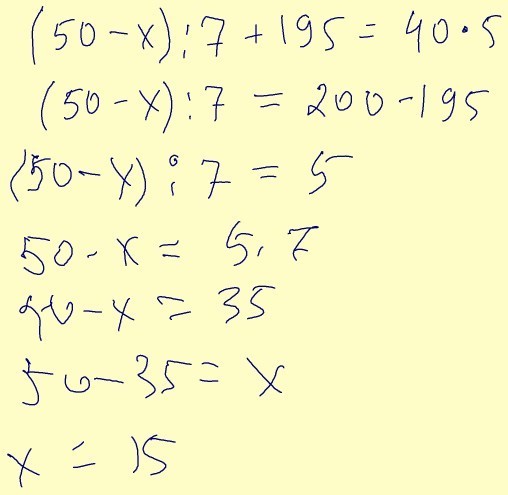 (50-x):7+195=40·5
(50-x):7=200-195
(50-x):7=5
50-x=5·7
50-x=35
50-35=x
x=15